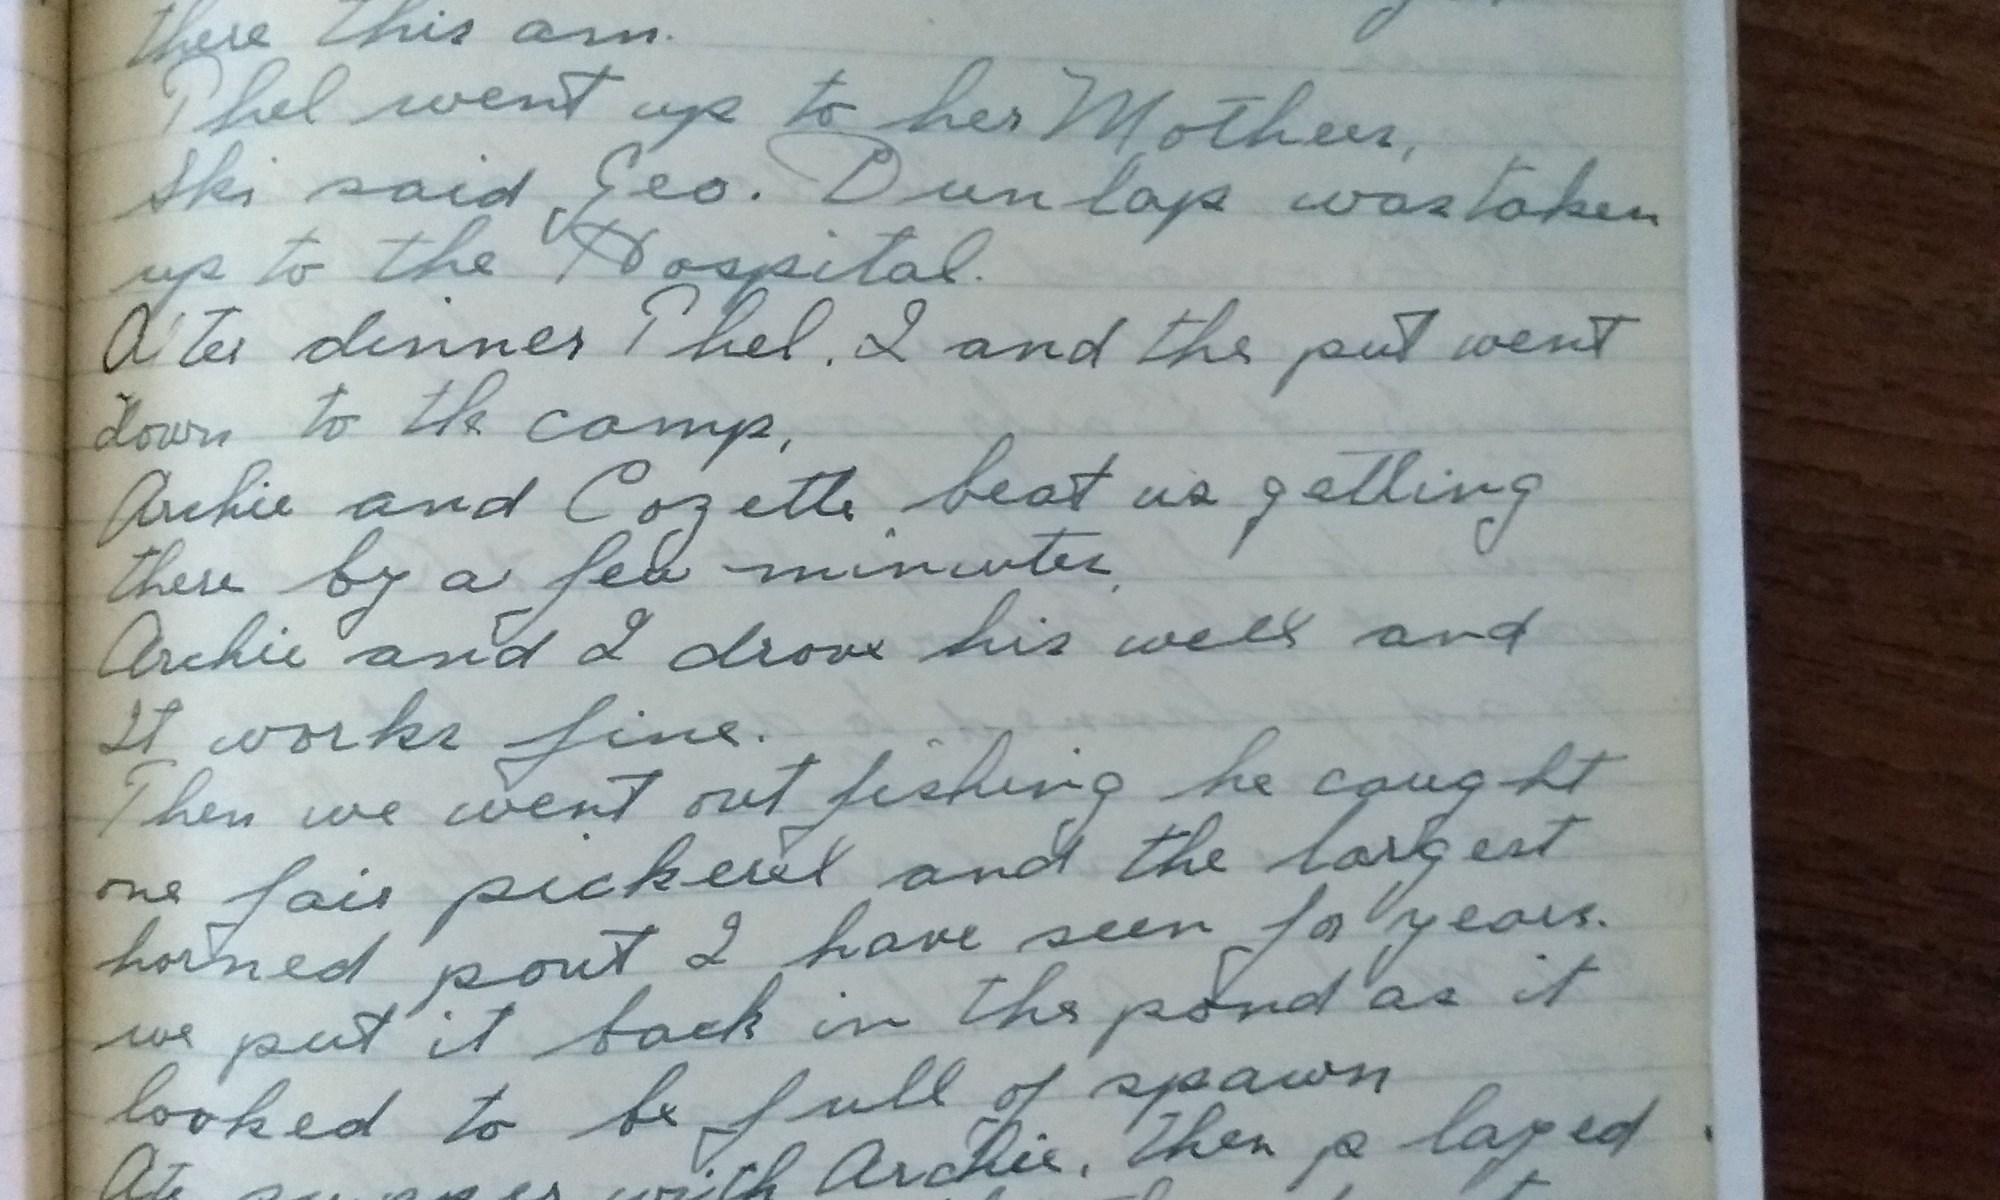 there this am.
Thel went up to her Mothers,
Ski said Geo. Dunlap was taken
up to the Hospital.
A'ter dinner Thel. I and the put went
down to the camp,
Archie and Cozette beat us getting
there by a few minutes,
Archie and I drove his well and
It works fine.
Then we went out fishing he caught
one fair pickerel and the largest
horned pout I have seen for years.
we put it back in the pond as it
looked to be full of spawn
Ate supper with Archie, then played